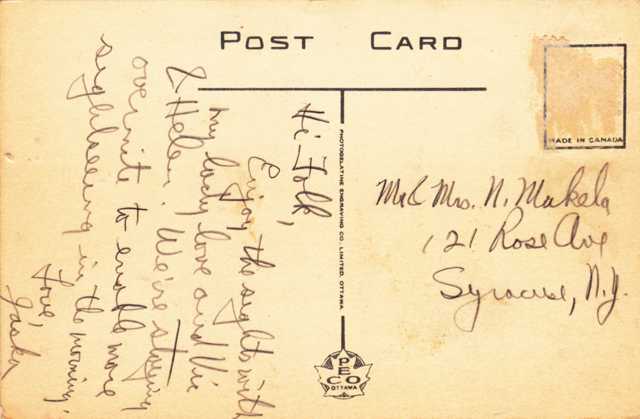 POST CARD
MADE IN CANADA
Hi Folk,
Enjoy the sights with
my lady love and Vic
& Helen. We're staying
overnite to enable more
sightseeing in the morning.
Love,
PHOTOGELATINE ENGRAVING CO. LIMITED, OTTAWA
PECO
OTTAWA
Mr & Mrs. N. Makela
121 Rose Ave
Syracuse, N.Y.